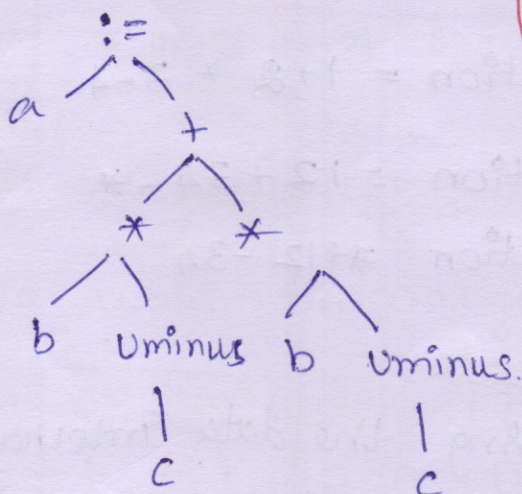 :=
a
+
* *
b uminus b uminus.
c c